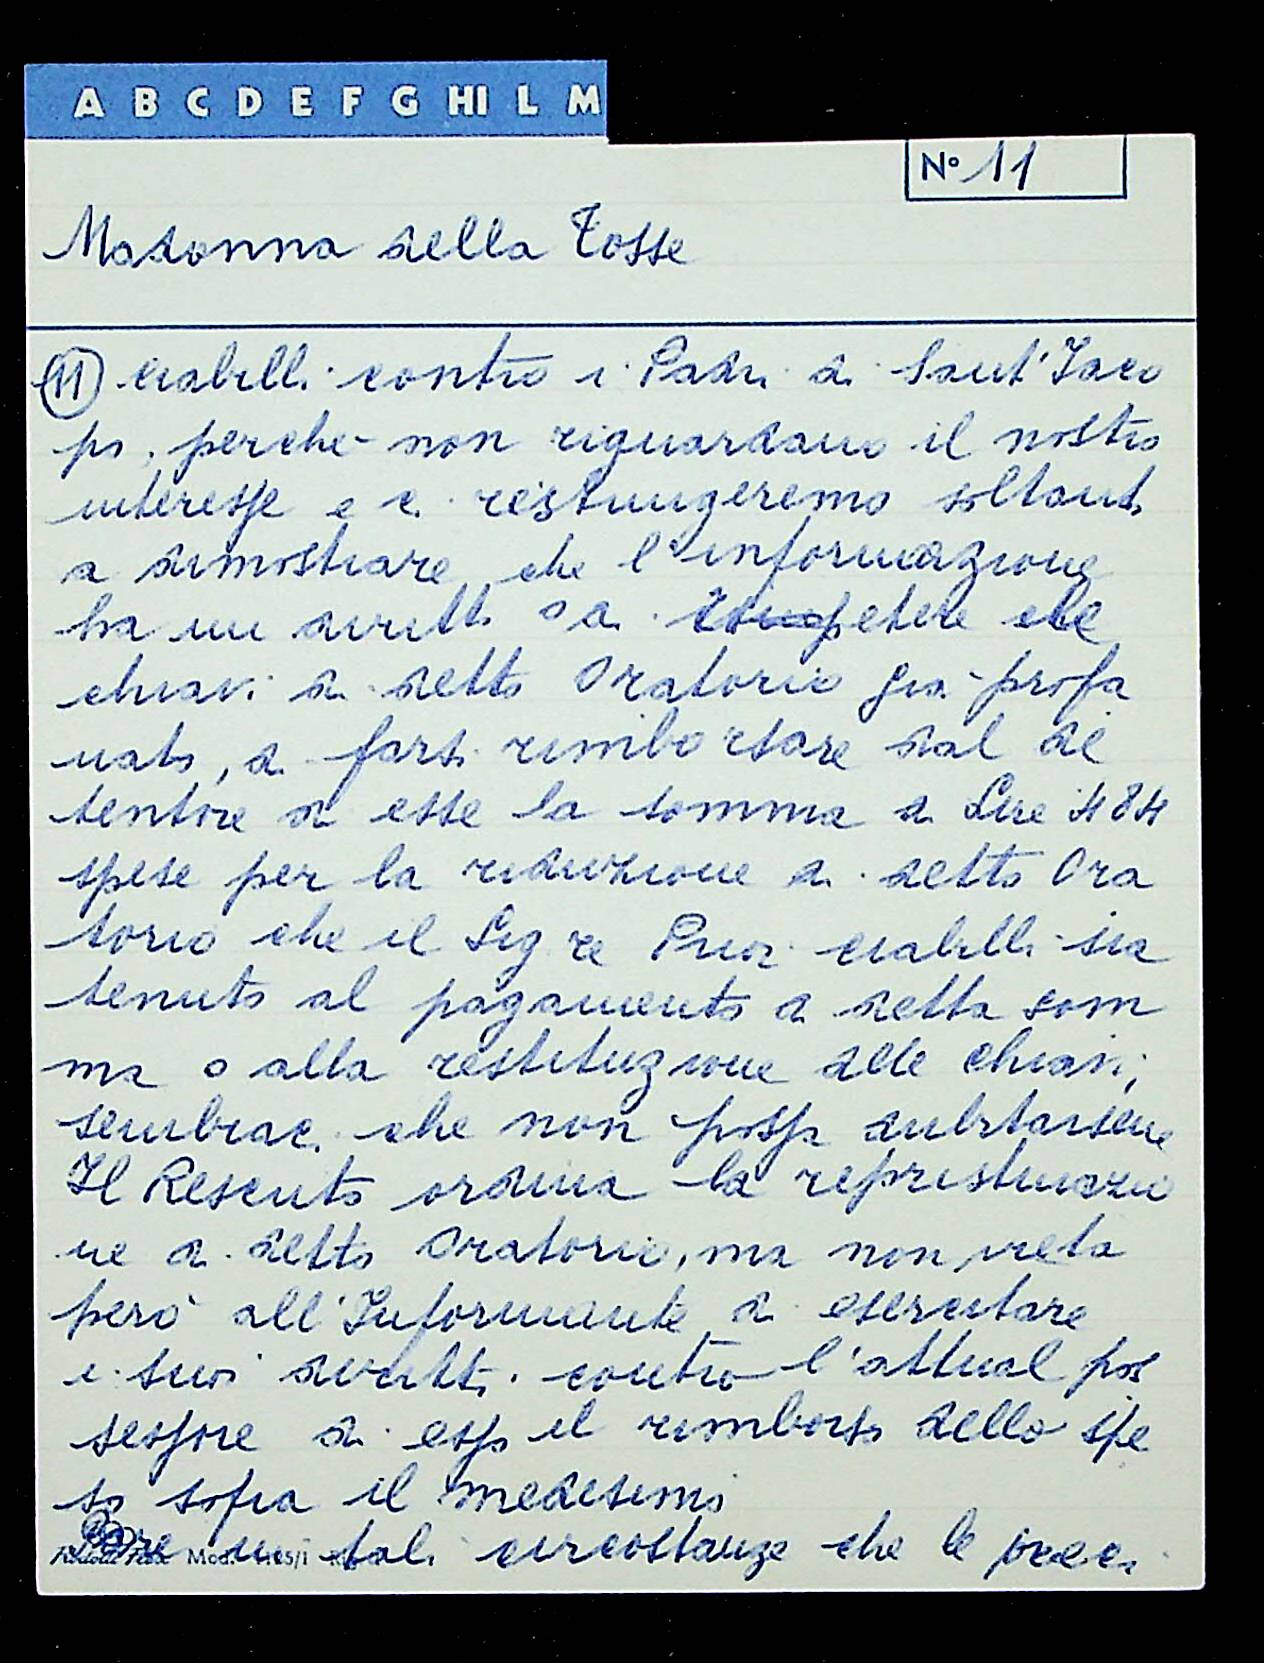 A B C D E F G HI L M
N° 11
Madonna della Tosse
(11) Ciabilli contro i Padri di Sant'Jaco
po, perchè non riguardano il nostro
interesse e ci restringeremo soltanto
a dimostrare, che l'informazione
ha un diritto o a ripetere le
chiavi di detto Oratorio già profa
nato, o a farsi rimborsare dal de
tentore di esse la somma di Lire 484
spese per la riduzione di detto Ora
torio che il Sig re Prior Ciabilli sia
tenuto al pagamento di detta som
ma o alla restituzione delle chiavi,
sembraci che non possa dubitarsene
Il Rescritto ordina la repristinazio
ne di detto Oratorio, ma non vieta
però all'Informante di esercitare
i suoi diritti contro l'attual pos
sessore di esso il rimborso dello spe
so sopra il medesimo
in tali circostanze che le preci